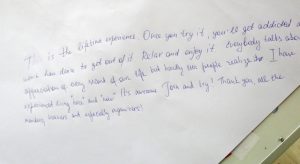 This is the lifetime experience. Once you try it, you'll get addicted and
want to get out of it. Relax and enjoy it. Everybody talks about
appreciation of every moment of our life but hardly people realize this. I have
experienced living "here" and "now". It's awesome. Join and try! Thank you, all the
especially organizers!